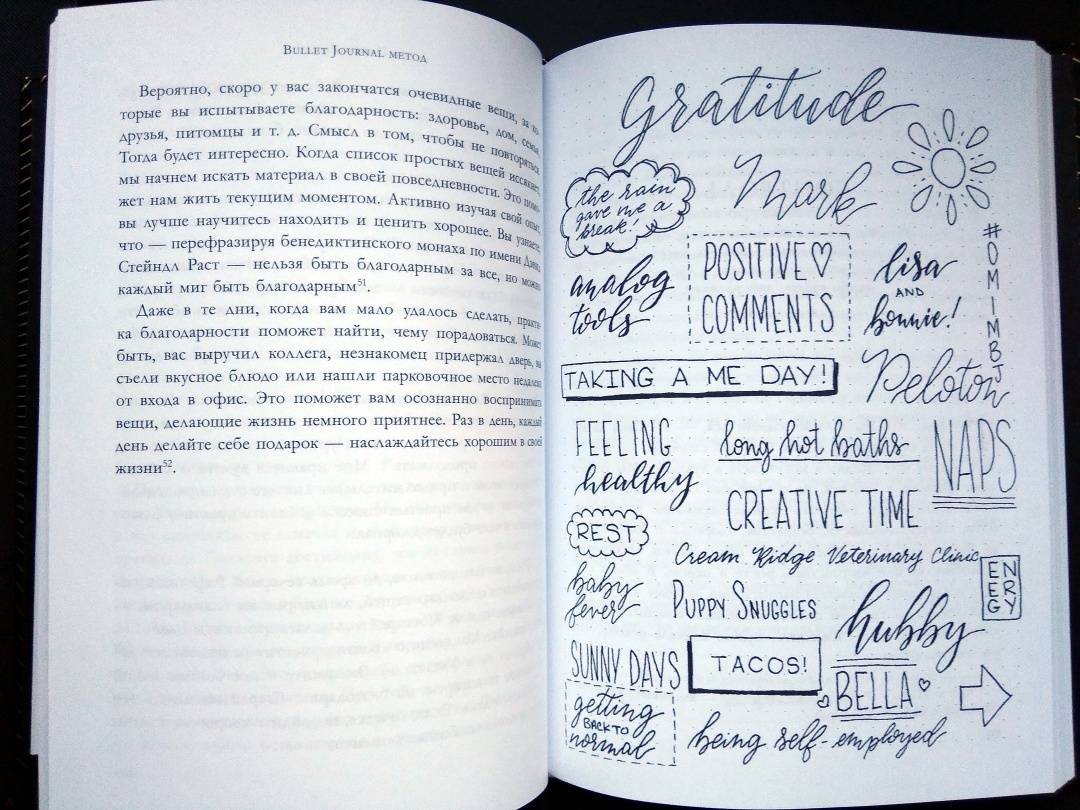 Bullet Journal метод
Вероятно, скоро у вас закончатся очевидные вещи, за ко-
торые вы испытываете благодарность: здоровье, дом, семья,
друзья, питомцы и т. д. Смысл в том, чтобы не повторяться.
Тогда будет интересно. Когда список простых вещей иссякнет,
мы начнем искать материал в своей повседневности. Это помо-
жет нам жить текущим моментом. Активно изучая свой опыт,
вы лучше научитесь находить и ценить хорошее. Вы узнаете,
что — перефразируя бенедиктинского монаха по имени Дэвид
Стейндл Раст — нельзя быть благодарным за все, но можно
каждый миг быть благодарным⁵¹.
Даже в те дни, когда вам мало удалось сделать, практи-
ка благодарности поможет найти, чему порадоваться. Может
быть, вас выручил коллега, незнакомец придержал дверь, вы
съели вкусное блюдо или нашли парковочное место недалеко
от входа в офис. Это поможет вам осознанно воспринимать
вещи, делающие жизнь немного приятнее. Раз в день, каждый
день делайте себе подарок — наслаждайтесь хорошим в своей
жизни⁵².
Gratitude
the rain
gave me a
break!
Mark
analog
tools
POSITIVE
COMMENTS
lisa
AND
bonnie!
#OMIMBJ
TAKING A ME DAY!
Peloton
FEELING
healthy
long hot baths
NAPS
CREATIVE TIME
REST
Cream Ridge Veterinary Clinic
EN
ER
GY
baby
fever
PUPPY SNUGGLES
hubby
SUNNY DAYS
TACOS!
BELLA
getting
BACK TO
normal
being self-employed